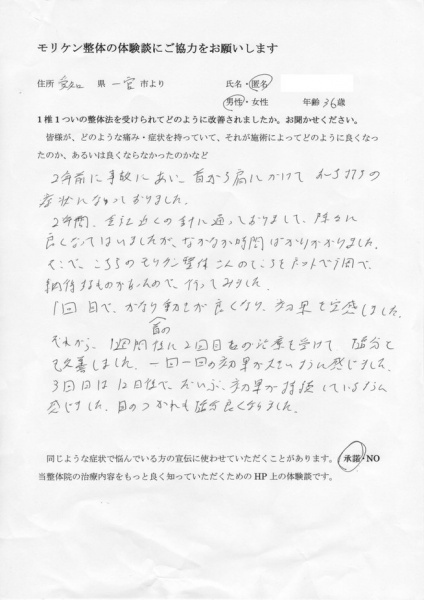 モリケン整体の体験談にご協力をお願いします
住所 愛知 県 一宮 市より 氏名・匿名
男性・女性 年齢 36歳
1椎1ついの整体法を受けられてどのように改善されましたか。お聞かせください。
皆様が、どのような痛み・症状を持っていて、それが施術によってどのように良くなっ
たのか、あるいは良くならなかったのかなど
2年前に事故にあい、首から肩にかけて むちうちの
症状になっておりました。
2年間、会社近くの に通っておりまして、除々に
良くなってはいましたが、なかなか時間ばかりかかりました。
そこで、こちらのモリケン整体さんのところをネットで調べ、
納得するものがあったので、行ってみました。
1回目で、かなり首の動きが良くなり、効果を実感しました。
それから、1週間位に2回目の治療を受けて 随分と
改善しました。一回一回の効果が大きいように感じました。
3回目は12日位で、だいぶ、効果が持続しているように
感じました。目のつかれも随分良くなりました。
同じような症状で悩んでいる方の宣伝に使わせていただくことがあります。 承諾・NO
当整体院の治療内容をもっと良く知っていただくための HP 上の体験談です。